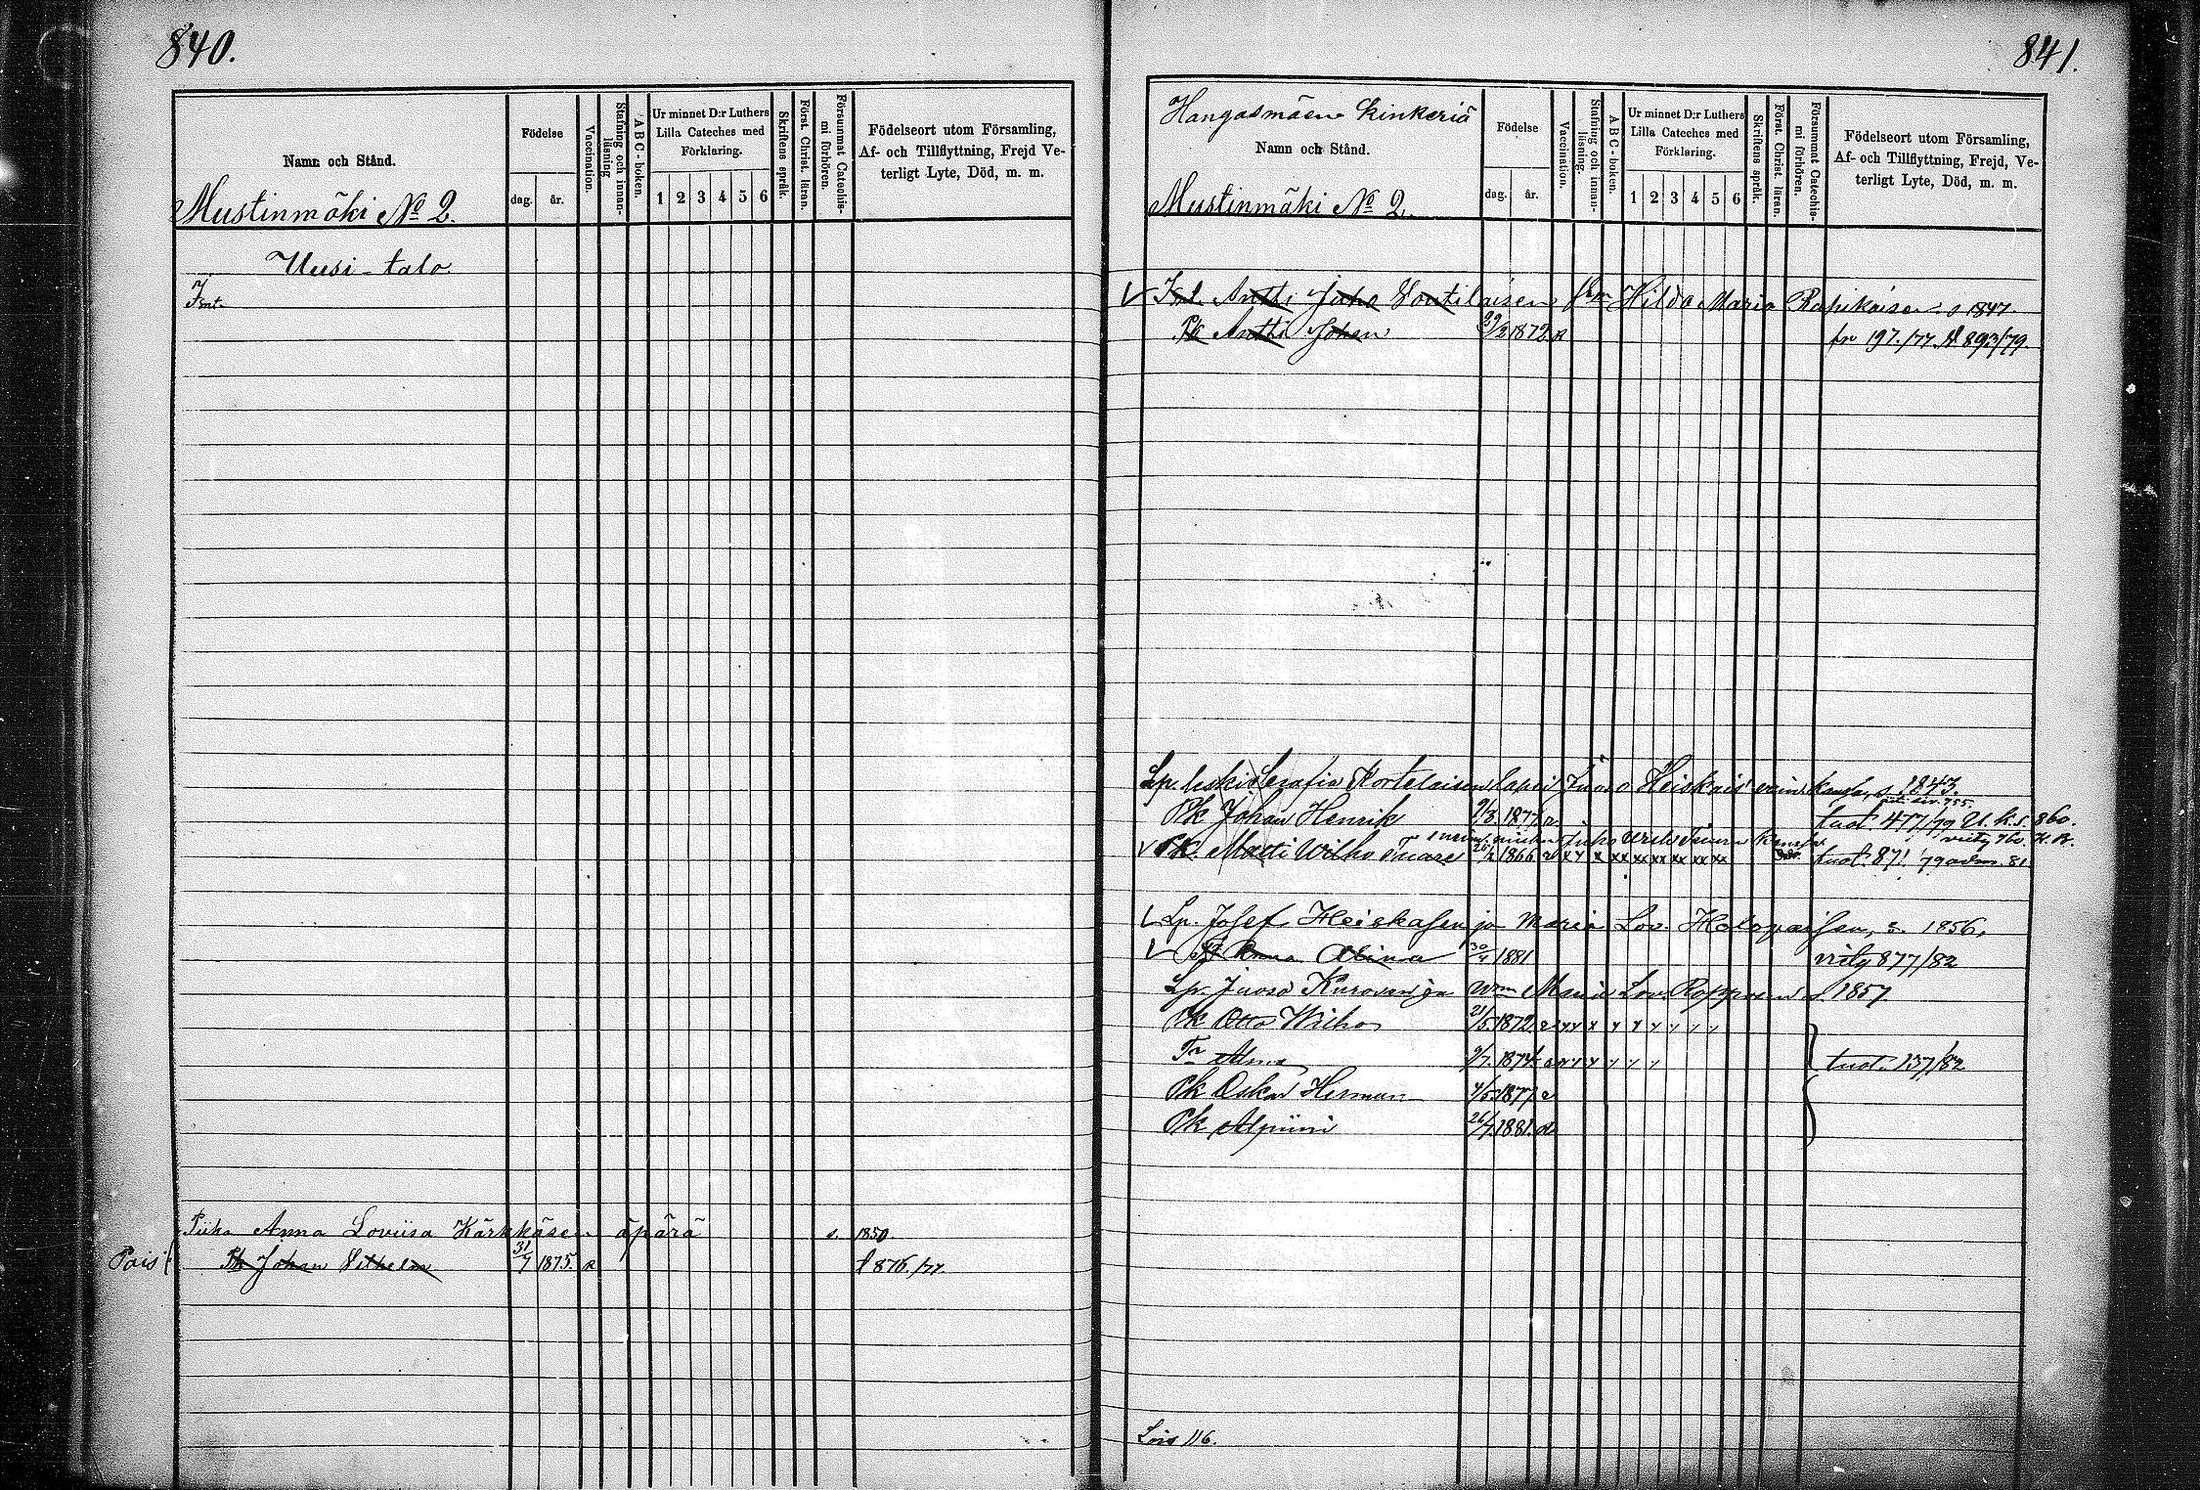 840.
Namn och Stånd.
Födelse
dag.
år.
Vaccination.
Stafning och innan-
läsning
ABC-boken.
Ur minnet D:r Luthers
Lilla Cateches med
Förklaring.
1 2 3 4 5 6
Skriftens språk.
Först. Christ. läran.
Försummat Catechis-
mi förhören.
Födelseort utom Församling,
Af- och Tillflyttning, Frejd Ve-
terligt Lyte, Död, m. m.
Mustinmäki No 2.
Uusi-talo
Piika Anna Loviisa Kärkkäsen äpärä s. 1850.
Pois
Pk Johan Vilhelm 31/7 1875. R 876/77.
841.
Hangasmäen kinkeriä
Namn och Stånd.
Födelse
dag.
år.
Vaccination.
Stafning och innan-
läsning.
ABC-boken.
Ur minnet D:r Luthers
Lilla Cateches med
Förklaring.
1 2 3 4 5 6
Skriftens språk.
Först. Christ. läran.
Försummat Catechis-
mi förhören.
Födelseort utom Församling,
Af- och Tillflyttning, Frejd, Ve-
terligt Lyte, Död, m. m.
Mustinmäki No 2.
Antti Juho Voutilaisen Hilda Maria s 1847
Pk Antti Johan 1872. R fr 197./77. 893/79.
Lp. leski Serafia Kortelaisen lapsi Juoso Heiskais kanssa, s. 1843.
Pk Johan Henrik 9/8. 1877. tuot. 477/79 U.k.s. 860.
Pk. Matti Wilho 1866 tuot. 87. 81.
Lp. Josef Heiskasen ja Maria Lov. s. 1856.
Anna Alina 30/4 1881 877/82
Lp. Juoso Kurosen ja Wmn Maria Lov. Ropposen s. 1857
Pk Otto Wilho 21/5. 1872.
Tr Alma 9/7. 1874. tuot. 137/82
Pk Oskar Herman 1877
Pk Alpiini 26/7. 1881.
Lois 116.